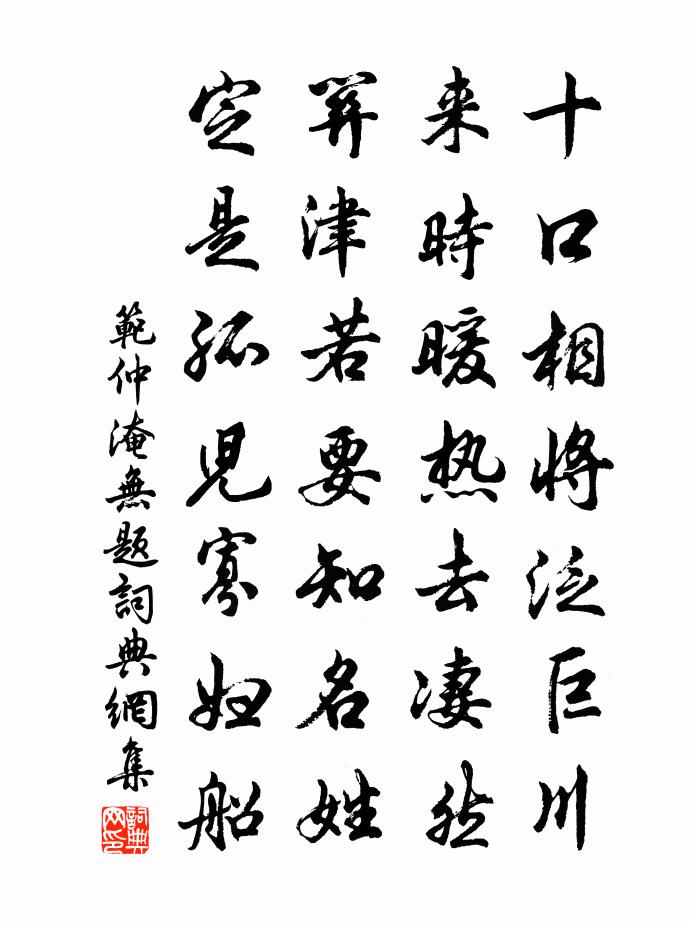 十口相將泛巨川
来時暖热去凄然
關津若要知名姓
定是孤兒寡妇船
範仲淹無题詞典網集
詞典网印